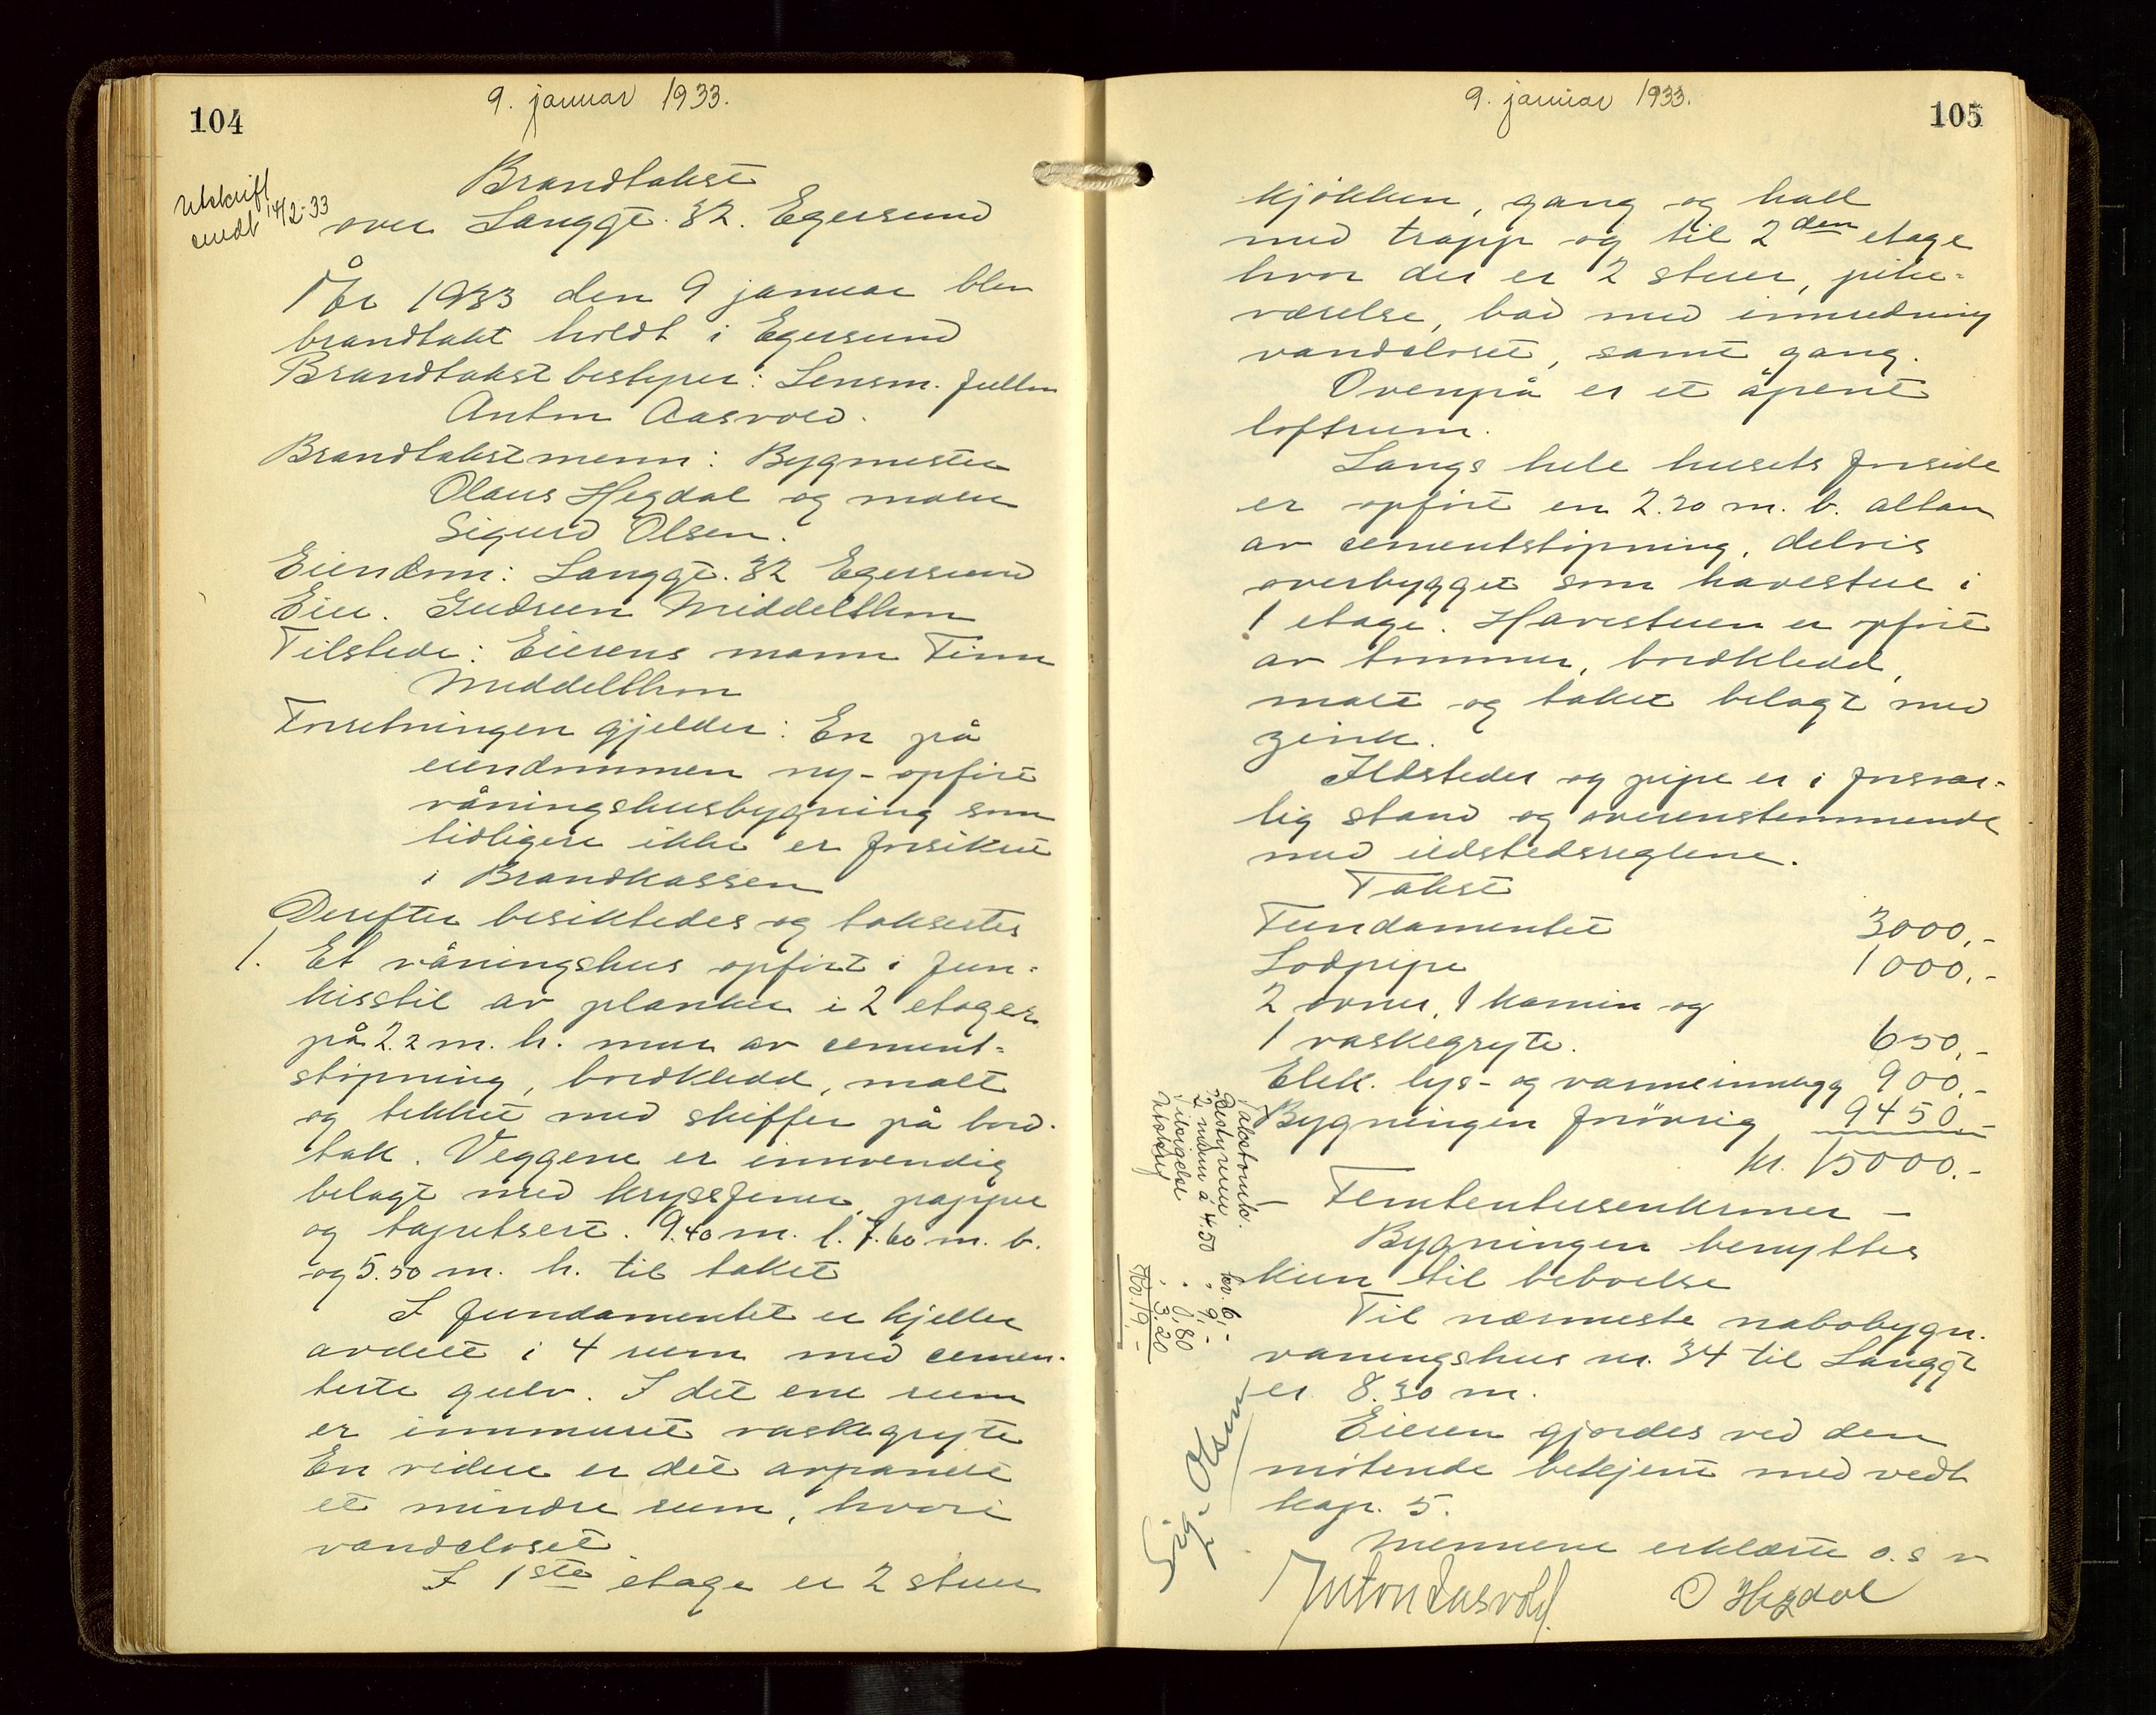 104
9. januar 1933.
Utskrift
sendt 14/2-33
Brandtakst
over Langgt. 32. Egersund
År 1933 den 9 januar blev
brandtakt holdt i Egersund
Brandtakst bestyrer: Lensm. fullm
Anton Aasvold.
Brandtakstmenn: Bygmester
Olaus Hegdal og maler
Sigurd Olsen.
Eiendom: Langgt. 32 Egersund
Eier. Gudrun Middelthon
Tilstede: Eierens mann Finn
Middelthon
Forretningen gjelder: En på
eiendommen ny-opført
våningshusbygning som
tidligere ikke er forsikret
i Brandkassen
Derefter besiktedes og taksertes
1. Et våningshus opført i fun-
kisstil av planker i 2 etager
på 2.2 m. h. mur av cement-
støpning, bordkledd, malt
og tekket med skiffer på bord-
tak. Veggene er innvendig
belagt med kryssfiner, papper
og tapetsert. 9.40 m. l. 7.60 m. b.
og 5.50 m. h. til taket
I fundamentet er kjeller
avdelt i 4 rum med cemen-
terte gulv. I det ene rum
er innmuret vaskegryte
En videre er det avpanelt
et mindre rum, hvori
vandcloset
I 1ste etage er 2 stuer
9. januar 1933.
105
kjøkken, gang og hall
med trapp og til 2den etage
hvor der er 2 stuer, pike-
værelse, bad med innredning
vandcloset, samt gang.
Ovenpå er et åpent
loftrum.
Langs hele husets forside
er opført en 2.20 m. b. altan
av cementstøpning, delvis
overbygget som havestue i
1 etage. Havestuen er opført
av tømmer, bordkledd,
malt og taket belagt med
zink.
Ildsteder og pipe er i forsvar-
lig stand og overenstemmende
med ildstedsreglene.
Takst
Fundamentet 3000,-
Lodpipe 1000,-
2 ovner, 1 kamin og
1 vaskegryte. 650,-
Elek. lys- og varmeinnlegg 900,-
Bygningen forøvrig 9450,-
kr. 15000.-
- Femtentusenkroner -
Bygningen benyttes
kun til beboelse
Til nærmeste nabobygn.
våningshus nr. 34 til Langgt
er 8.30 m.
Eieren gjordes ved den
møtende bekjent med vedt
kap. 5.
Mennene erklærte o. s v
Anton Aasvold. O Hegdal
Sig. Olsen
Takstomk.
Bestyreren kr. 6,-
2 menn á 4.50 " 9,-
" 0,80
Utskrift " 3,20
Kr. 19,-